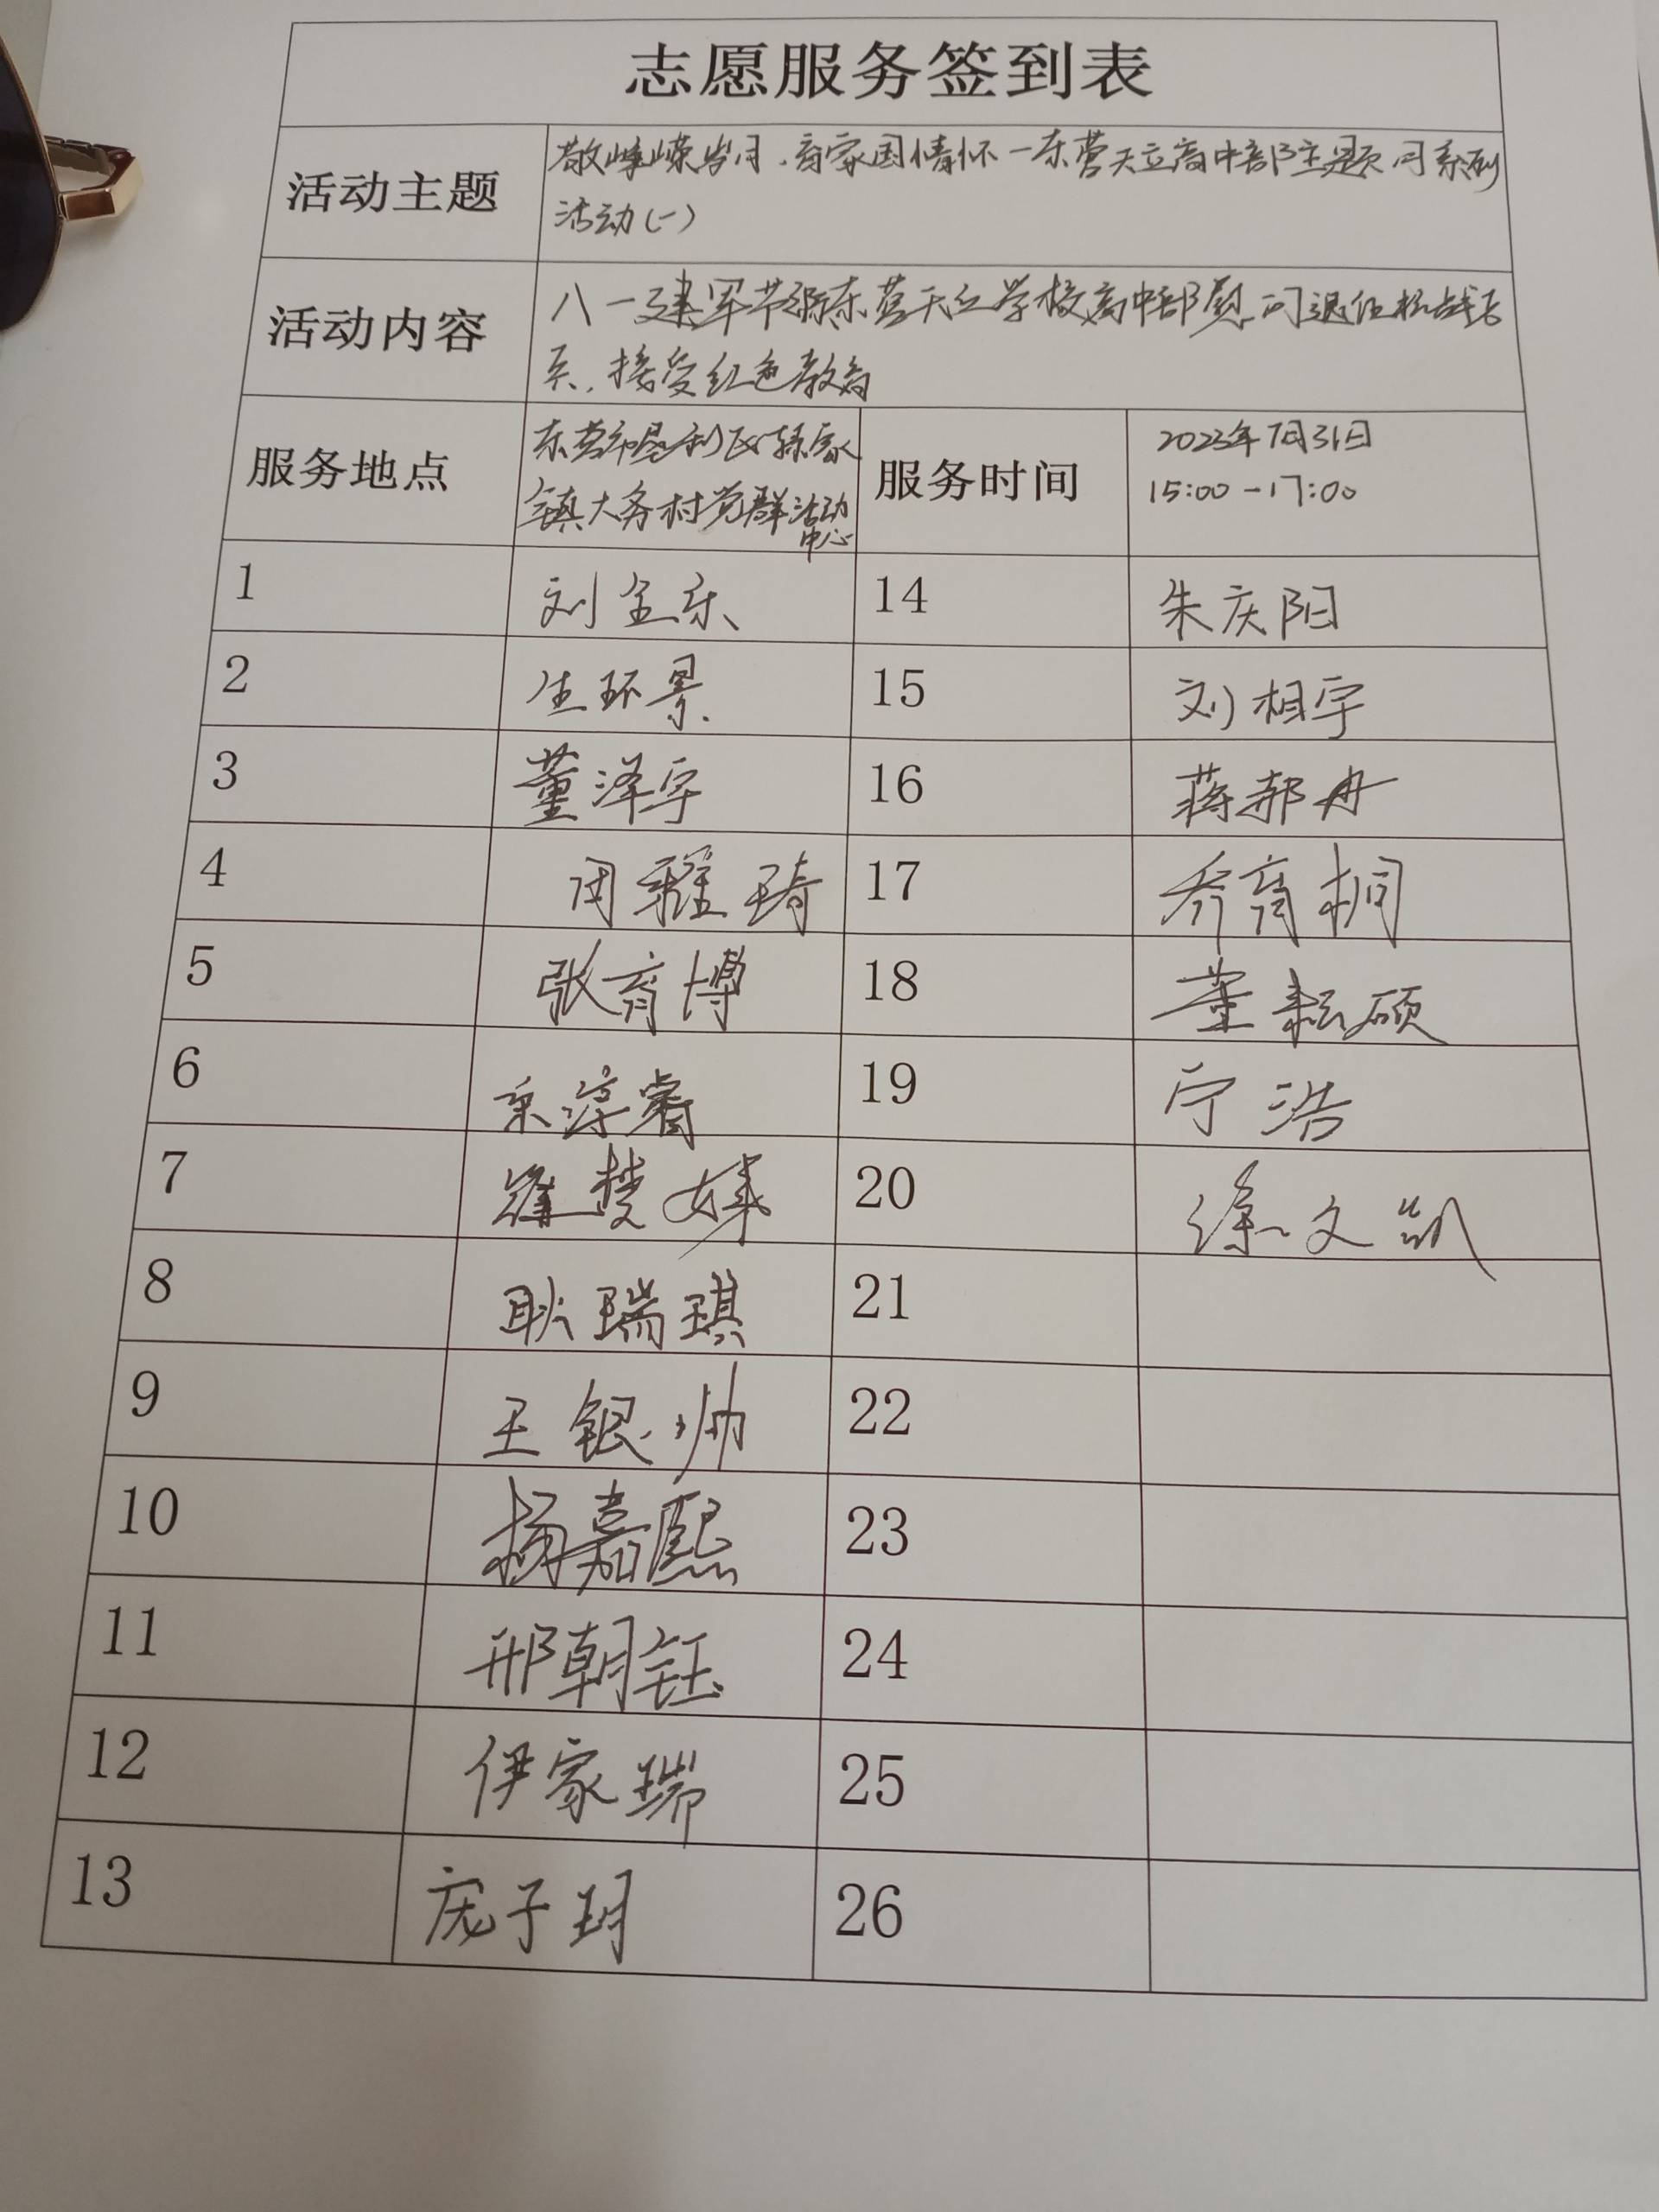 志愿服务签到表
活动主题
敬峥嵘岁月,育家国情怀一东营天立高中部主题月系列
活动(一)
活动内容
八一建军节 东营天立学校高中部慰问退伍抗战老
兵,接受红色教育
服务地点
东营市垦利区 家
镇大务村党群活动
中心
服务时间
2023年7月31日
15:00-17:00
1 刘金乐 14 朱庆阳
2 生环景 15 刘相宇
3 董泽宇 16 蒋郝冉
4 周耀琦 17 乔育桐
5 张育博 18 董耘硕
6 淳睿 19 宁浩
7 楚 20 徐文凯
8 耿瑞琪 21
9 王银帅 22
10 杨嘉熙 23
11 邢朝钰 24
12 伊家瑞 25
13 庞子玥 26